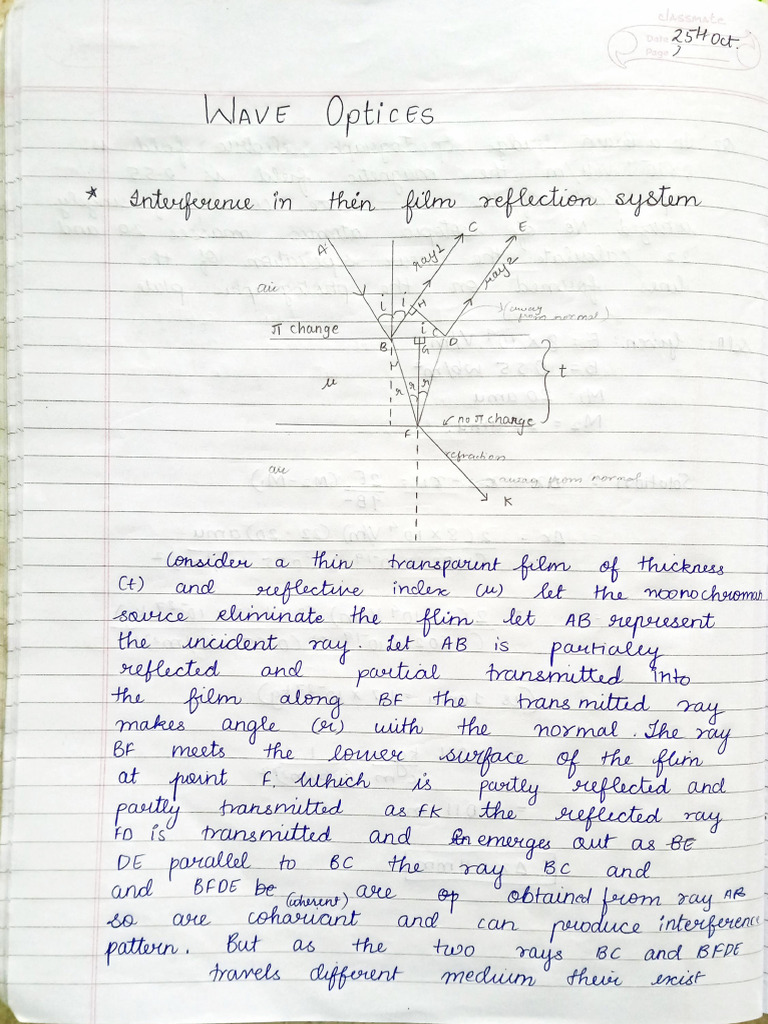 classmate
Date 25th Oct.
Page
WAVE Optices
* Interference in thin film reflection system
A
C
E
ray 1
ray 2
air
i
i
H
(away from normal)
π change
i
B
G
D
μ
r
r
r
t
F
no π change
refraction
air
away from normal
K
Consider a thin transparent film of thickness
(t) and reflective index (μ) let the moonochromar
source eliminate the flim let AB represent
the incident ray. Let AB is partialey
reflected and partial transmitted into
the film along BF the transmitted ray
makes angle (r) with the normal. The ray
BF meets the lower surface of the flim
at point F. Which is partly reflected and
partly transmitted as FK the reflected ray
FD is transmitted and emerges out as BE
DE parallel to BC the ray BC and
and BFDE be (coherent) are op obtained from ray AB
so are cohariant and can produce interference
pattern. But as the two rays BC and BFDE
travels different medium their exist